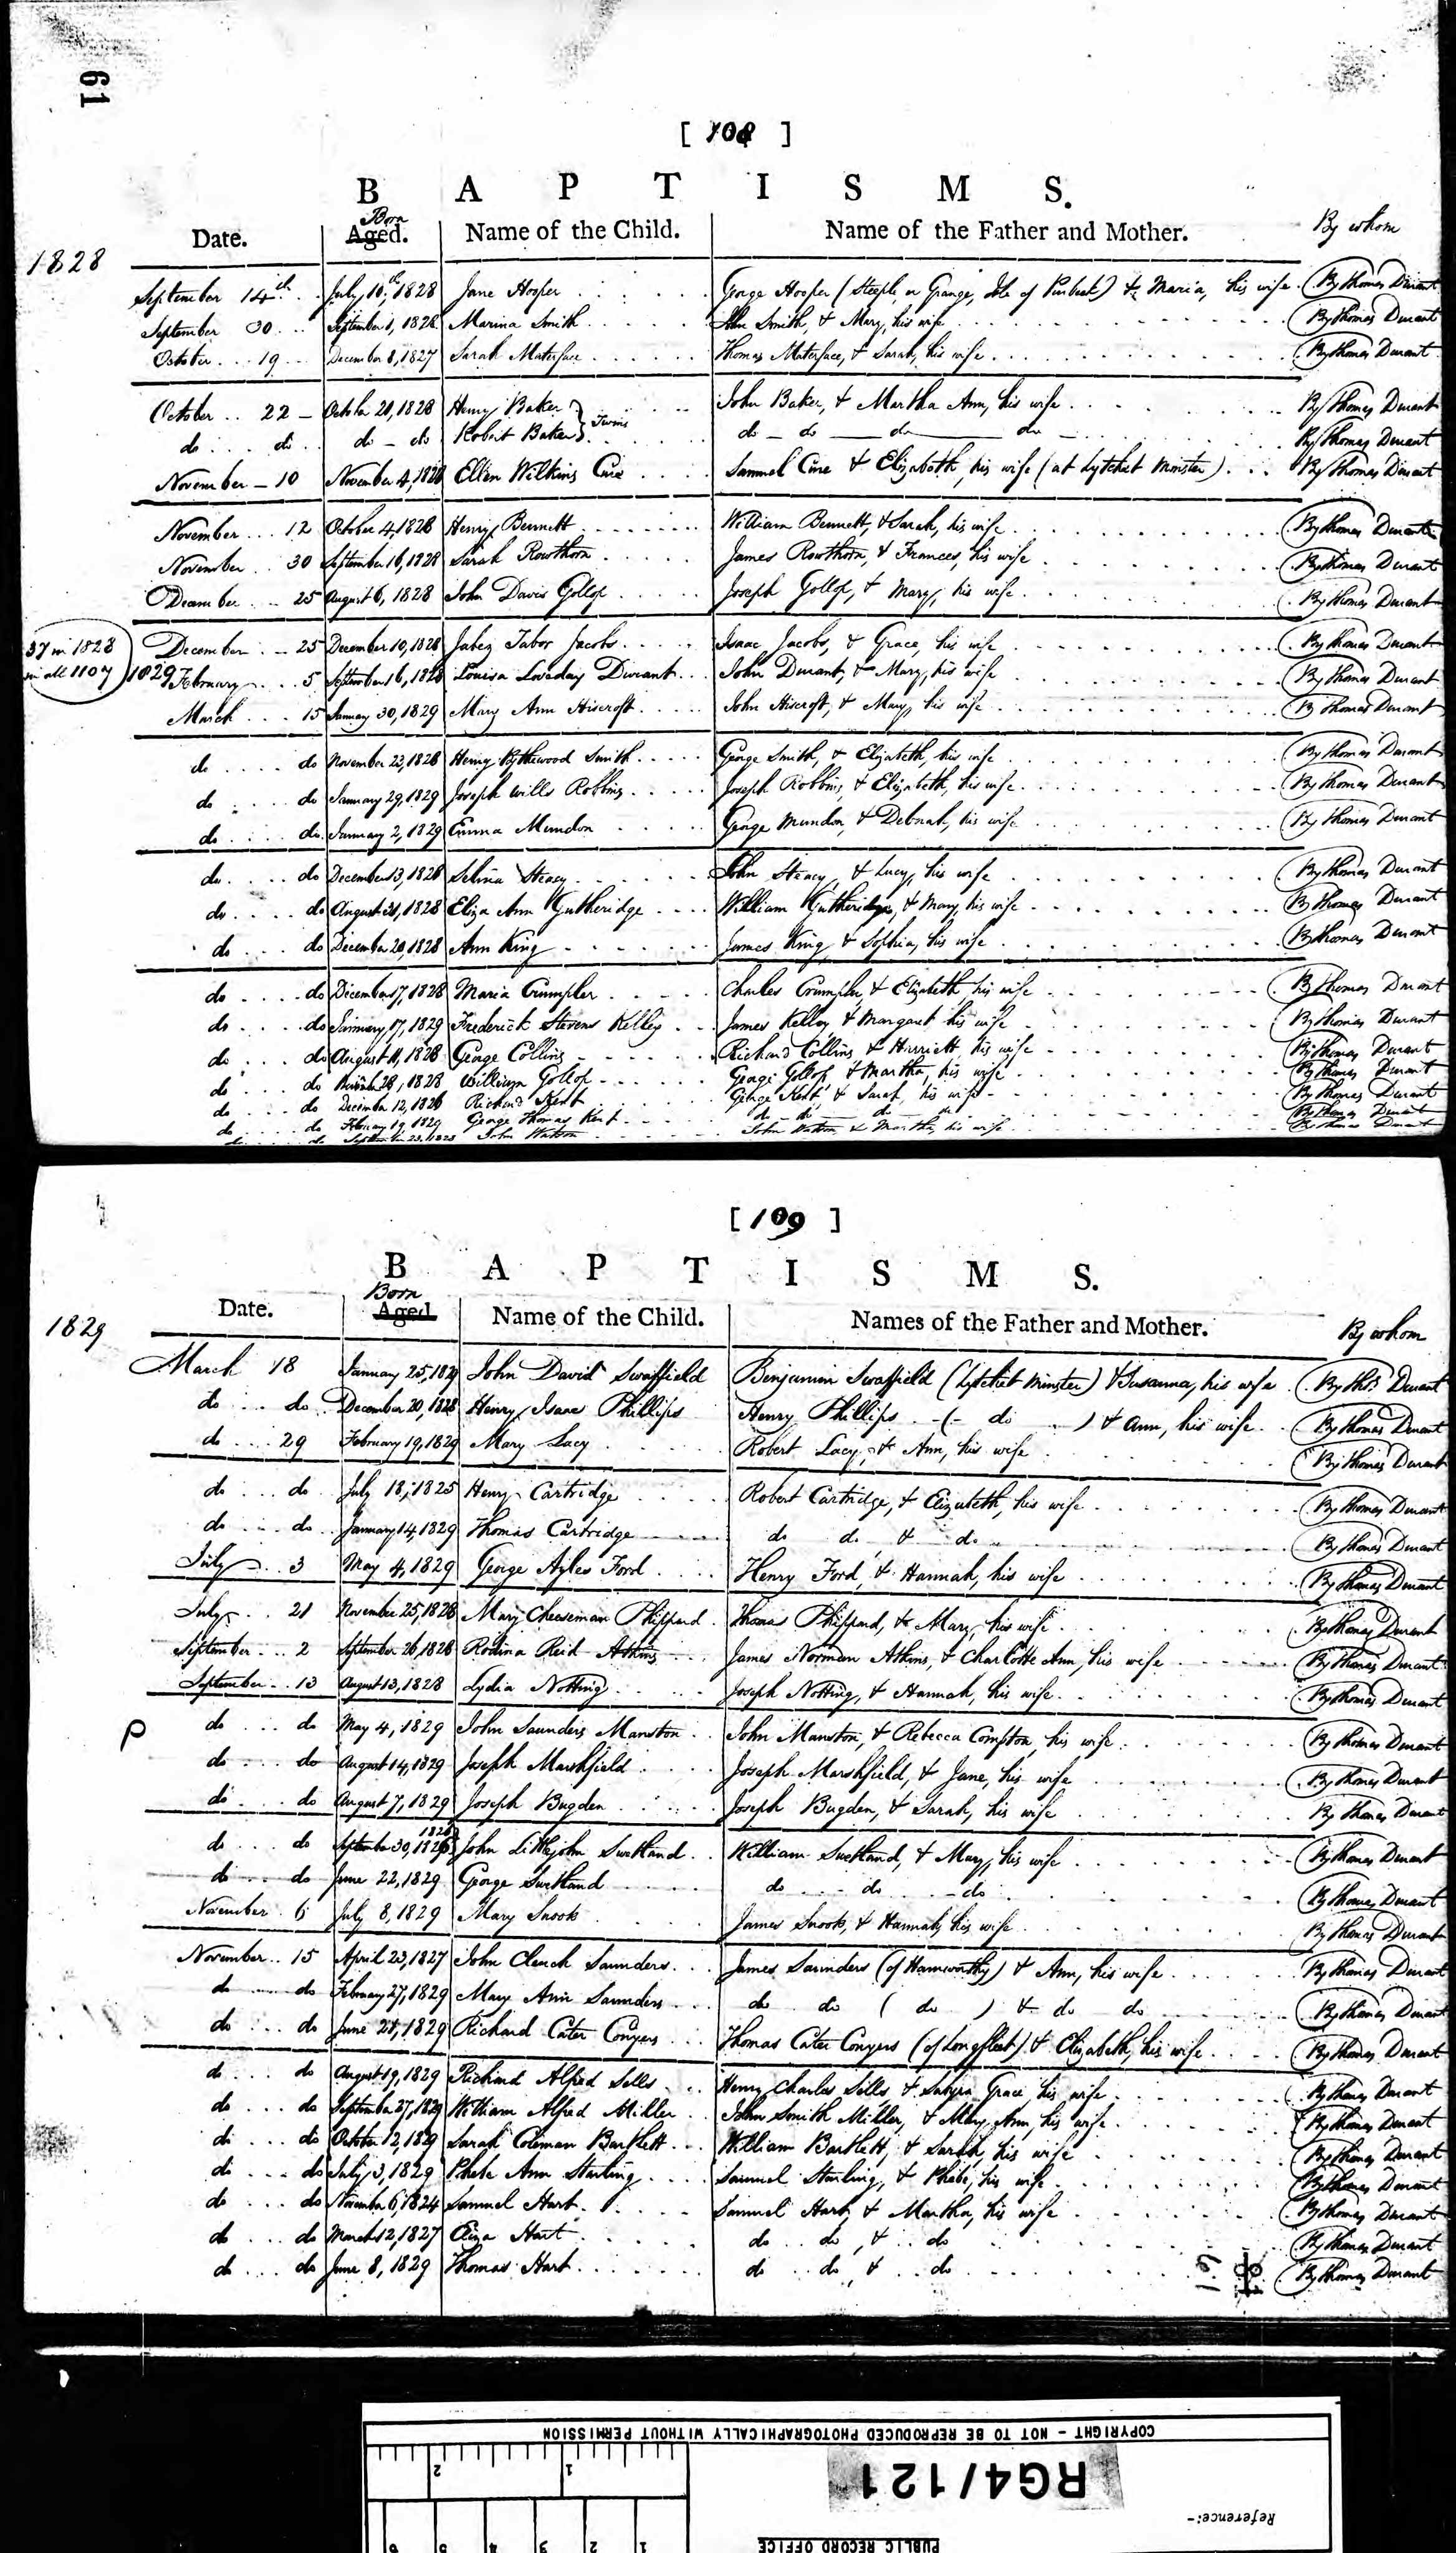 61
[ 108 ]
B A P T I S M S.
Date. Born Aged. Name of the Child. Name of the Father and Mother. By whom
1828
September 14th July 10th, 1828 Jane Hooper George Hooper (Steeple or Grange, Isle of Purbeck) & Maria, his wife. By Thomas Durant
September 30 September 1, 1828 Marina Smith John Smith, & Mary, his wife By Thomas Durant
October 19 December 8, 1827 Sarah Materface Thomas Materface, & Sarah, his wife By Thomas Durant
October 22 October 20, 1828 Henry Baker } Twins John Baker, & Martha Ann, his wife By Thomas Durant
do do do - do Robert Baker } do - do do do By Thomas Durant
November - 10 November 4, 1828 Ellen Wilkins Cure Samuel Cure & Elizabeth, his wife (at Lytchet Minster) By Thomas Durant
November 12 October 4, 1828 Henry Bennett William Bennett, & Sarah, his wife By Thomas Durant
November 30 September 16, 1828 Sarah Rowthorn James Rowthorn, & Frances, his wife By Thomas Durant
December 25 August 6, 1828 John Davis Gollop Joseph Gollop, & Mary, his wife By Thomas Durant
37 in 1828
in all 1107
December 25 December 10, 1828 Jabez Tabor Jacobs Isaac Jacobs, & Grace, his wife By Thomas Durant
1829 February 5 September 16, 1828 Louisa Loveday Durant John Durant, & Mary, his wife By Thomas Durant
March 15 January 30, 1829 Mary Ann Hiscroft John Hiscroft, & Mary, his wife By Thomas Durant
do do November 23, 1828 Henry Bythewood Smith George Smith, & Elizabeth, his wife By Thomas Durant
do do January 29, 1829 Joseph Wills Robbins Joseph Robbins, & Elizabeth, his wife By Thomas Durant
do do January 2, 1829 Emma Mundon George Mundon, & Deborah, his wife By Thomas Durant
do do December 13, 1828 Selina Steacy John Steacy, & Lucy, his wife By Thomas Durant
do do August 31, 1828 Eliza Ann Gutheridge William Gutheridge, & Mary, his wife By Thomas Durant
do do December 20, 1828 Ann King James King & Sophia, his wife By Thomas Durant
do do December 17, 1828 Maria Crumpler Charles Crumpler, & Elizabeth, his wife By Thomas Durant
do do January 17, 1829 Frederick Stevens Kelley James Kelley & Margaret his wife By Thomas Durant
do do August 11, 1828 George Collins Richard Collins & Harriett his wife By Thomas Durant
do do 28, 1828 William Gollop George Gollop & Martha, his wife By Thomas Durant
do do December 12, 1826 Richard Kent George Kent & Sarah, his wife By Thomas Durant
do do February 19, 1829 George Thomas Kent do do do do By Thomas Durant
do do September 23, 1828 John Watson John Watson & Martha, his wife By Thomas Durant
[ 109 ]
B A P T I S M S.
Date. Born Aged Name of the Child. Names of the Father and Mother. By whom
1829
March 18 January 25, 1829 John David Swaffield Benjamin Swaffield (Lytchet Minster) & Susanna, his wife By Thos. Durant
do do December 20, 1828 Henry Isaac Phillips Henry Phillips (- do ) & Ann, his wife By Thomas Durant
do 29 February 19, 1829 Mary Lacy Robert Lacy, & Ann, his wife By Thomas Durant
do do July 18, 1825 Henry Cartridge Robert Cartridge, & Elizabeth, his wife By Thomas Durant
do do January 14, 1829 Thomas Cartridge do do & do By Thomas Durant
July 3 May 4, 1829 George Ayles Ford Henry Ford, & Hannah, his wife By Thomas Durant
July 21 November 25, 1828 Mary Cheeseman Phippard Thomas Phippard, & Mary, his wife By Thomas Durant
September 2 September 26, 1828 Rodina Reid Atkins James Norman Atkins, & Charlotte Ann, his wife By Thomas Durant
September 13 August 13, 1828 Lydia Notting Joseph Notting, & Hannah, his wife By Thomas Durant
P do do May 4, 1829 John Saunders Manston John Manston, & Rebecca Compton, his wife By Thomas Durant
do do August 14, 1829 Joseph Marshfield Joseph Marshfield, & Jane, his wife By Thomas Durant
do do August 7, 1829 Joseph Bugden Joseph Bugden, & Sarah, his wife By Thomas Durant
do do September 30, 1826 John Littlejohn Swetland William Swetland, & Mary, his wife By Thomas Durant
do do June 22, 1829 George Swetland do do do By Thomas Durant
November 6 July 8, 1829 Mary Snook James Snook, & Hannah, his wife By Thomas Durant
November 15 April 23, 1827 John Clench Saunders James Saunders (of Hamworthy) & Ann, his wife By Thomas Durant
do do February 27, 1829 Mary Ann Saunders do do ( do ) & do do By Thomas Durant
do do June 25, 1829 Richard Cater Conyers Thomas Cater Conyers (of Longfleet) & Elizabeth, his wife By Thomas Durant
do do August 19, 1829 Richard Alfred Sells Henry Charles Sells, & Grace, his wife By Thomas Durant
do do September 27, 1829 William Alfred Miller John Smith Miller, & Mary Ann, his wife By Thomas Durant
do do October 12, 1829 Sarah Coleman Bartlett William Bartlett, & Sarah, his wife By Thomas Durant
do do July 3, 1829 Phebe Ann Starling Samuel Starling, & Phebe, his wife By Thomas Durant
do do November 6, 1824 Samuel Hart Samuel Hart, & Martha, his wife By Thomas Durant
do do March 12, 1827 Eliza Hart do do, & do By Thomas Durant
do do June 8, 1829 Thomas Hart do do, & do By Thomas Durant
61
COPYRIGHT - NOT TO BE REPRODUCED PHOTOGRAPHICALLY WITHOUT PERMISSION
2 1
RG4/121
Reference:-
6 5 4 3 2 1
PUBLIC RECORD OFFICE